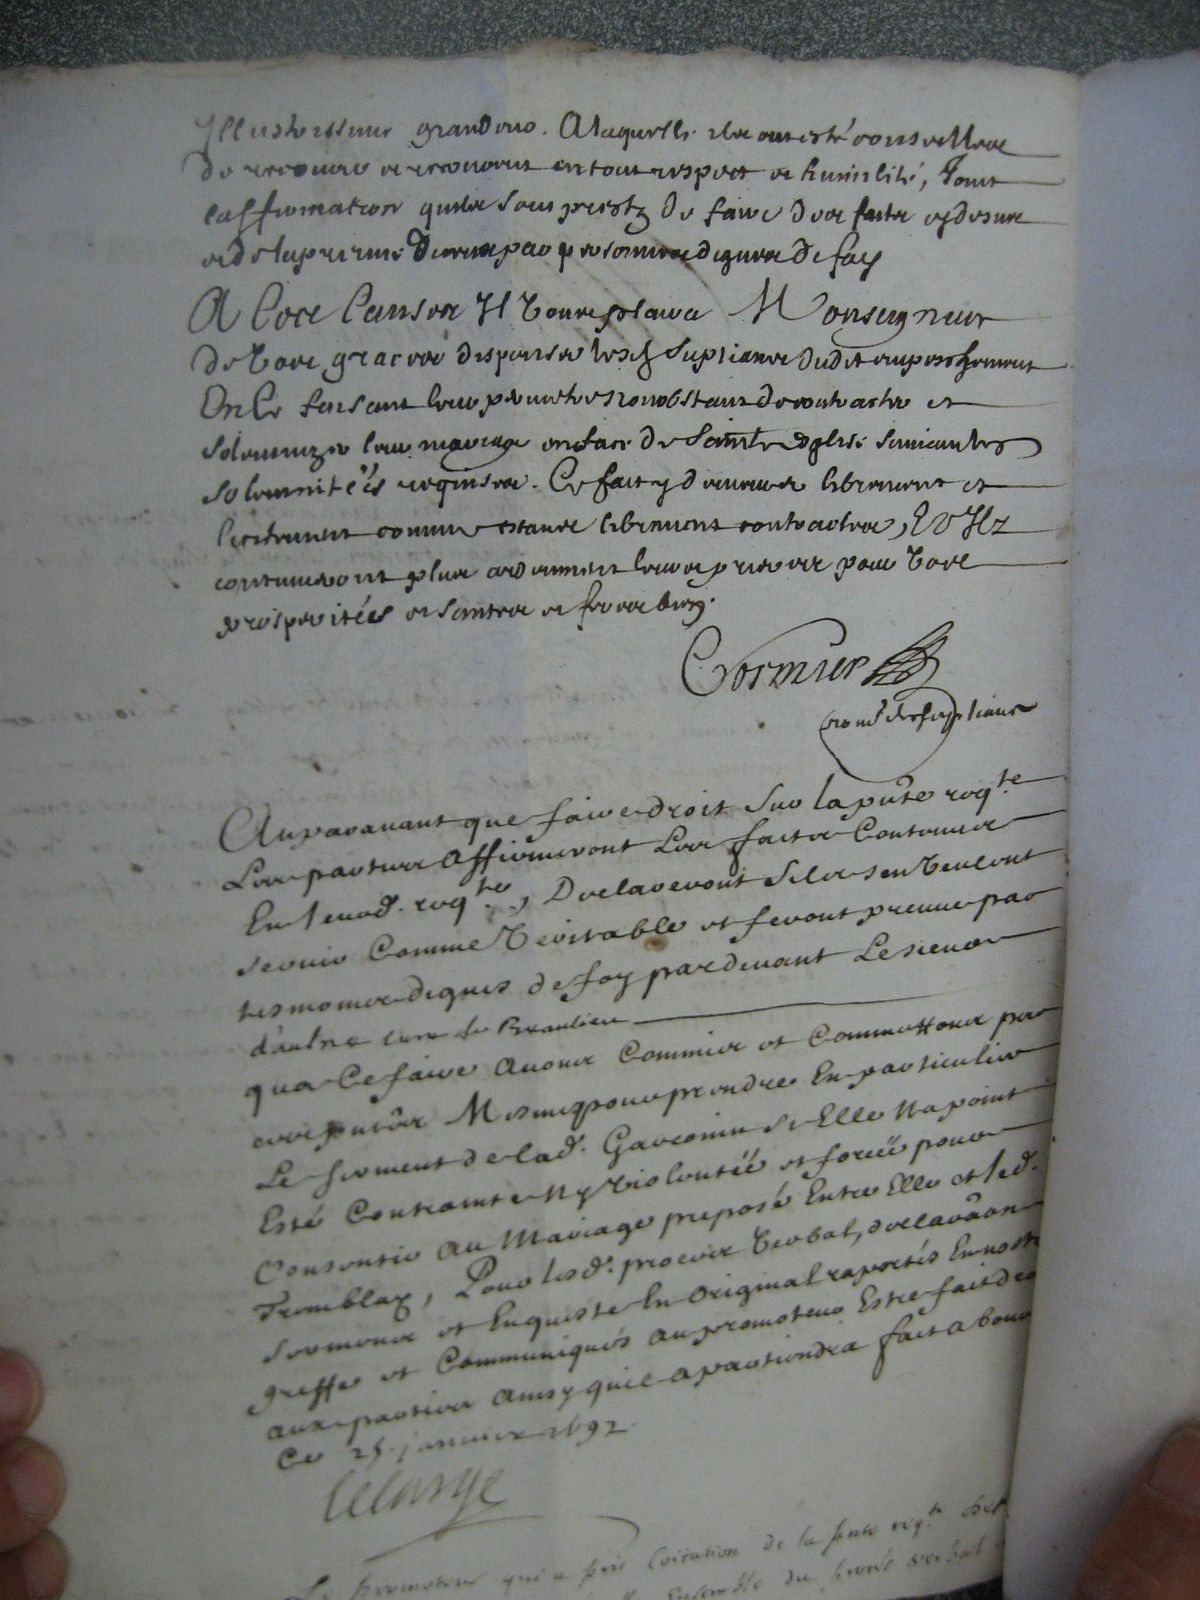 Illustrissime grandeur. A laquelle ils ont esté conseillez
de recourir et recourent en tout respect et humilité, soubs
laffirmation quils sont prestz de faire des faits cydessus
et de la preuve diceux par personnes dignes de foy
A Ces Causes Il Vous plaise Monseigneur
de Vos graces dispenser lesd Suplians dudit empeschement
En Ce faisant leur permettre nonobstant de contracter et
solemnizer leur mariage en face de Sainte eglise suivant les
solemnitéés requises. Ce fait y demeurer librement et
licitement comme estans librement contractez, Et Ilz
continueront plus ardemment leurs prieres pour Vos
prosperitées et santez et ferez bien.
Cormier
pour les suplians
Auparavant que faire droit Sur la pnte reqte
Les parties affirmeront Les faits Contenus
En lad. reqte, Declareront Silz sen veulent
servir Comme Veritable et feront preuve par
tesmoins dignes de foy pardevant Le sieur
daulne curé de Beaulieu
que Ce faire Avons Commis et Commettons par
ces pntes Mesmes pour prendre En particulier
Le serment de lad. Garconin Si Elle Na point
Esté Contrainte Ny Violentéé et forcéé pour
Consentir Au Mariage proposé Entre Elle et led.
Tremblay, Pour lesd. proces Verbal, declaraon
sermens et Enqueste En Original raportés En nostre
greffe et Communiqués au promoteur Estre fait droit
aux parties ainsy quil apartiendra fait a bours
Ce 25 janvier 1692
lelarge
Le promoteur qui a pris Coïcation de la pnte reqte
Ensemble du procés verbal